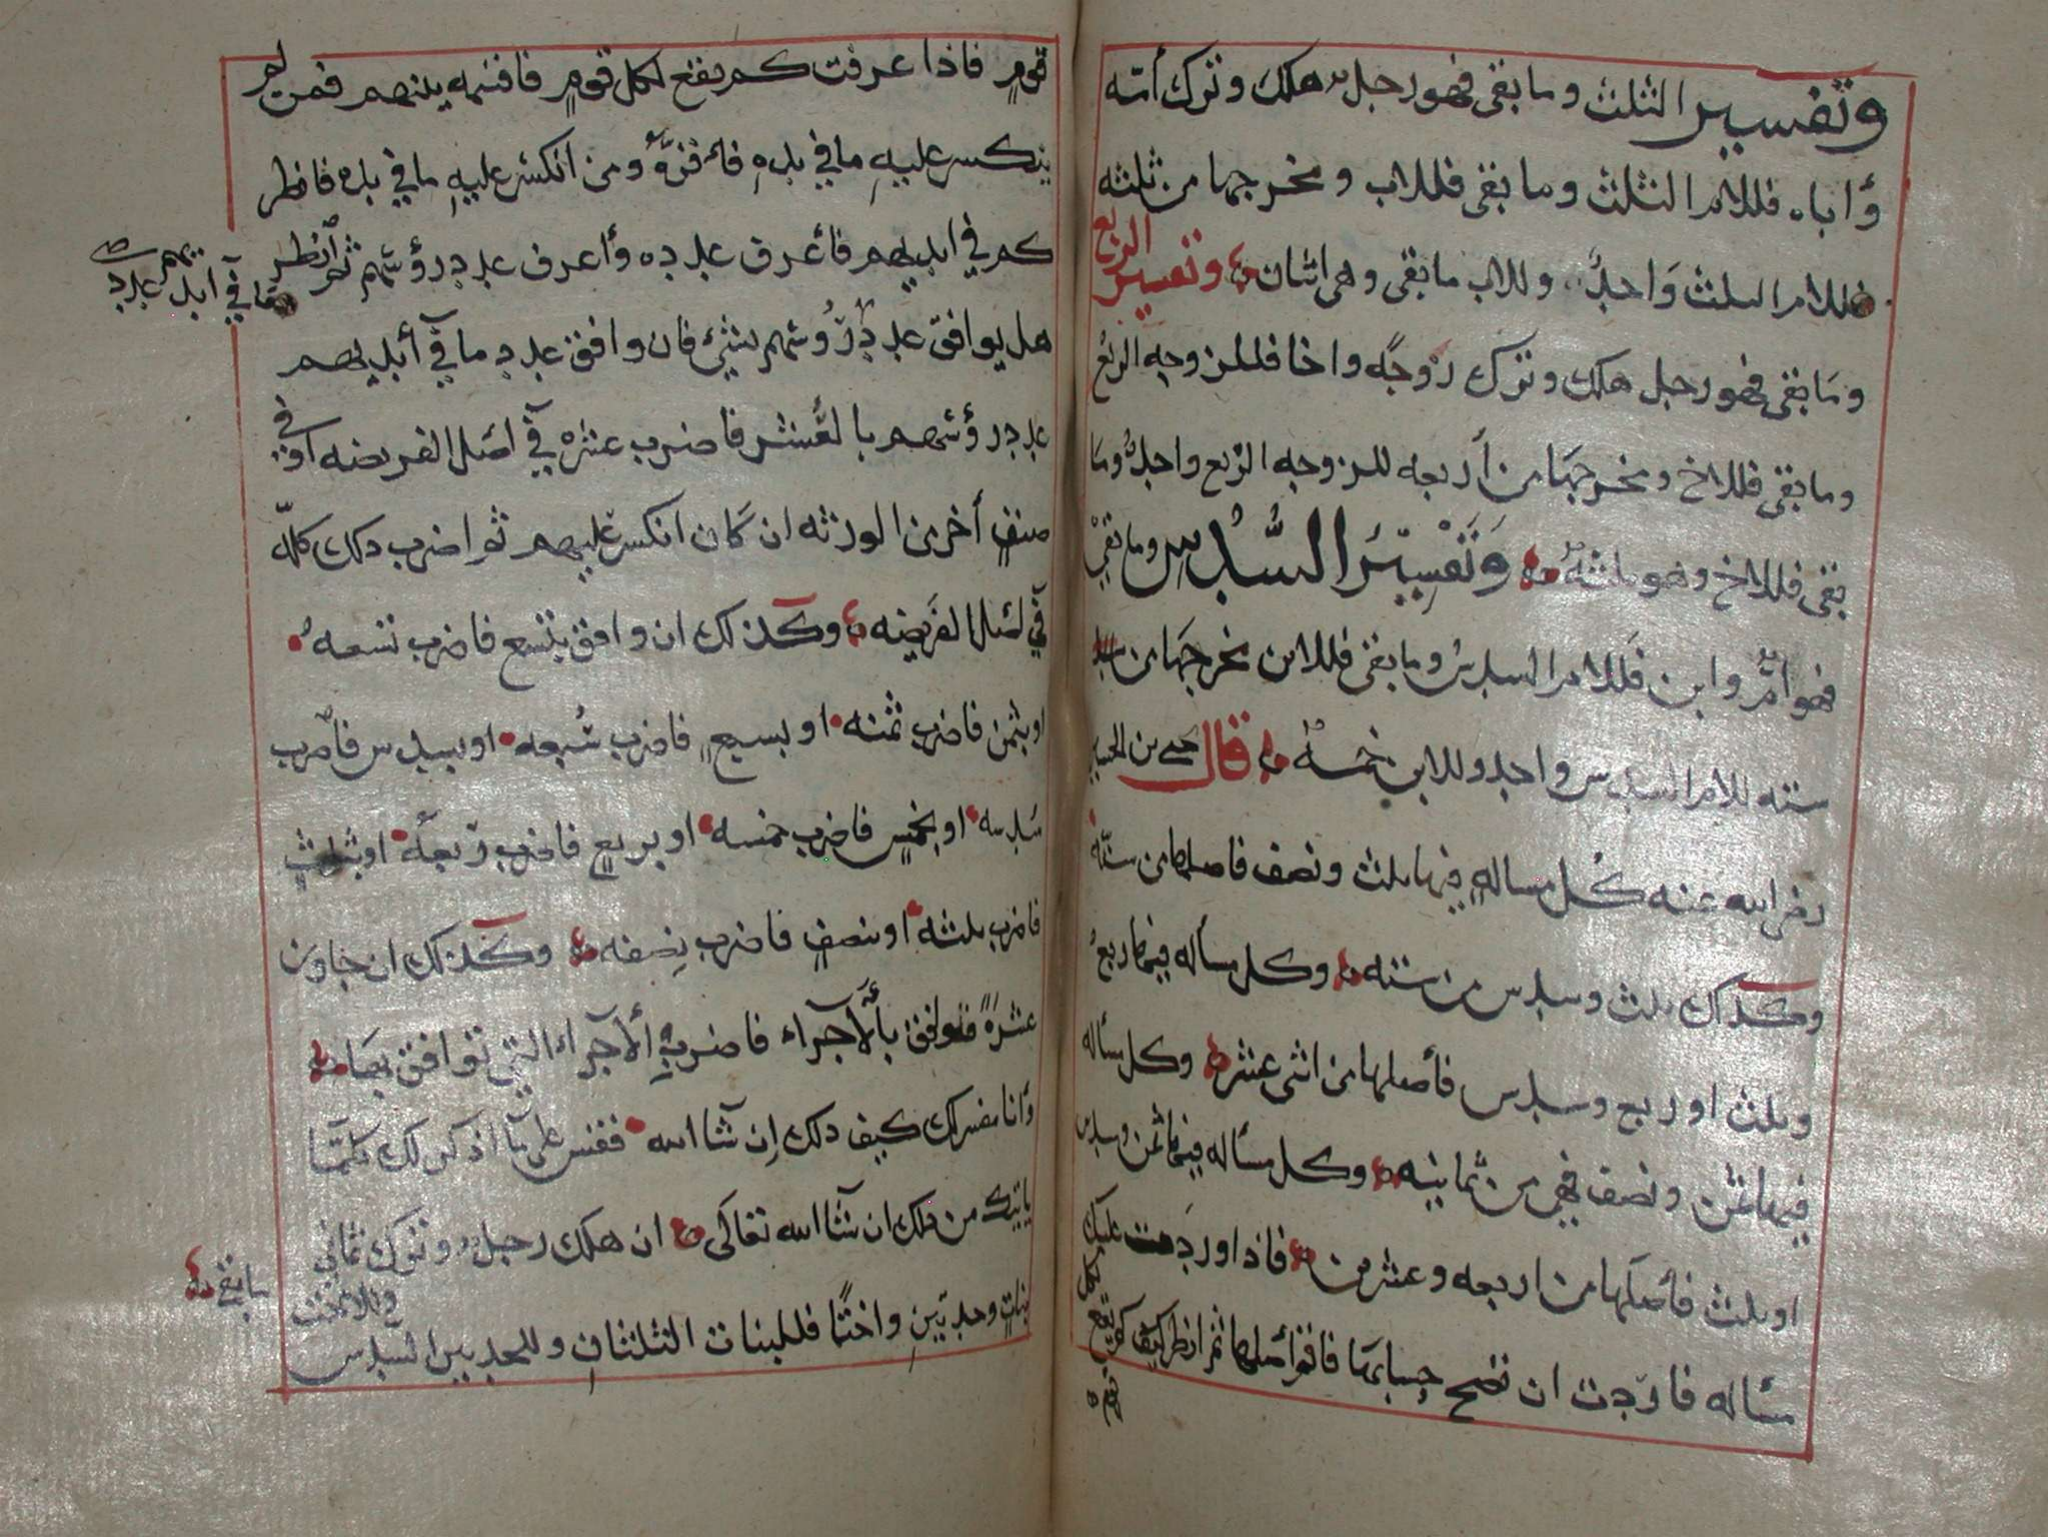 وتفسير الثلث وما بقى فهو رجل هلك وترك أمه
وأباه فللام الثلث وما بقى فللاب ومخرجها من ثلثه
فللام الثلث واحد وللاب ما بقى وهى اثنان وتفسير الربع
وما بقى فهو رجل هلك وترك زوجه واخا فللزوجه الربع
وما بقى فللاخ ومخرجها من أربعه للزوجه الربع واحد وما
بقى فللاخ وهو ثلثه وتفسير السدس وما بقي
فهو ام وابن فللام السدس وما بقى فللابن مخرجها من
سته للام السدس واحد وللابن خمسه قال يحيى بن الحسين
رضى الله عنه كل مساله فيها ثلث ونصف فاصلها من ستة
وكذلك ثلث وسدس من سته وكل مسأله فيها ربع
وثلث او ربع وسدس فأصلها من اثنى عشر وكل مسأله
فيها ثمن ونصف فهي من ثمانيه وكل مسأله فيها ثمن وسدس
او ثلث فأصلها من اربعه وعشرين فاذا وردت عليك
مسأله فاردت ان تصح حسابها فاقم أصلها ثم انظر كم يقع لكل
قوم فاذا عرفت كم يقع لكل قوم فاقسمه بينهم فمن لم
ينكسر عليه ما في يده فاقره ومن انكسر عليه ما في يده فانظر
كم في ايديهم فأعرف عدده وأعرف عدد رؤسهم ثم انظر
ما في ايديهم عدد
هل يوافق عدد رؤسهم بشئ فان وافق عدد ما في أيديهم
عدد رؤسهم بالعشر فاضرب عشره في اصل الفريضه او في
صنف أخر من الورثه ان كان انكسر عليهم ثم اضرب ذلك كله
في اصل الفريضه وكذلك ان وافق بتسع فاضرب تسعه
او بثمن فاضرب ثمنه او بسبع فاضرب سبعه او بسدس فاضرب
سدسه او بخمس فاضرب خمسه او بربع فاضرب ربعه او بثلث
فاضرب ثلثه او بنصف فاضرب نصفه وكذلك ان جاوز
عشرة فتوافق بألآجزاء فاضرب ألآجزاء التي توافق بها
وأنا مفسر لك كيف ذلك إن شا الله فقس على ما اذكر لك كلما
ياتيك من ذلك ان شا الله تعالى ان هلك رجل وترك ثماني
بنات وجدتين واختا فللبنات الثلثان وللجدتين السدس
وللاخت
ما بقي